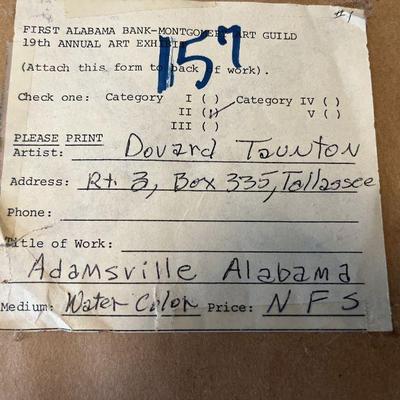 #1
FIRST ALABAMA BANK-MONTGOMERY ART GUILD
19th ANNUAL ART EXHIBI
157
(Attach this form to back of work).
Check one: Category I ( ) Category IV ( )
II (/) V ( )
III ( )
PLEASE PRINT
Artist: Dovard Taunton
Address: Rt. 3, Box 335, Tallassee
Phone:
Title of Work:
Adamsville Alabama
Medium: Water Color Price: NFS